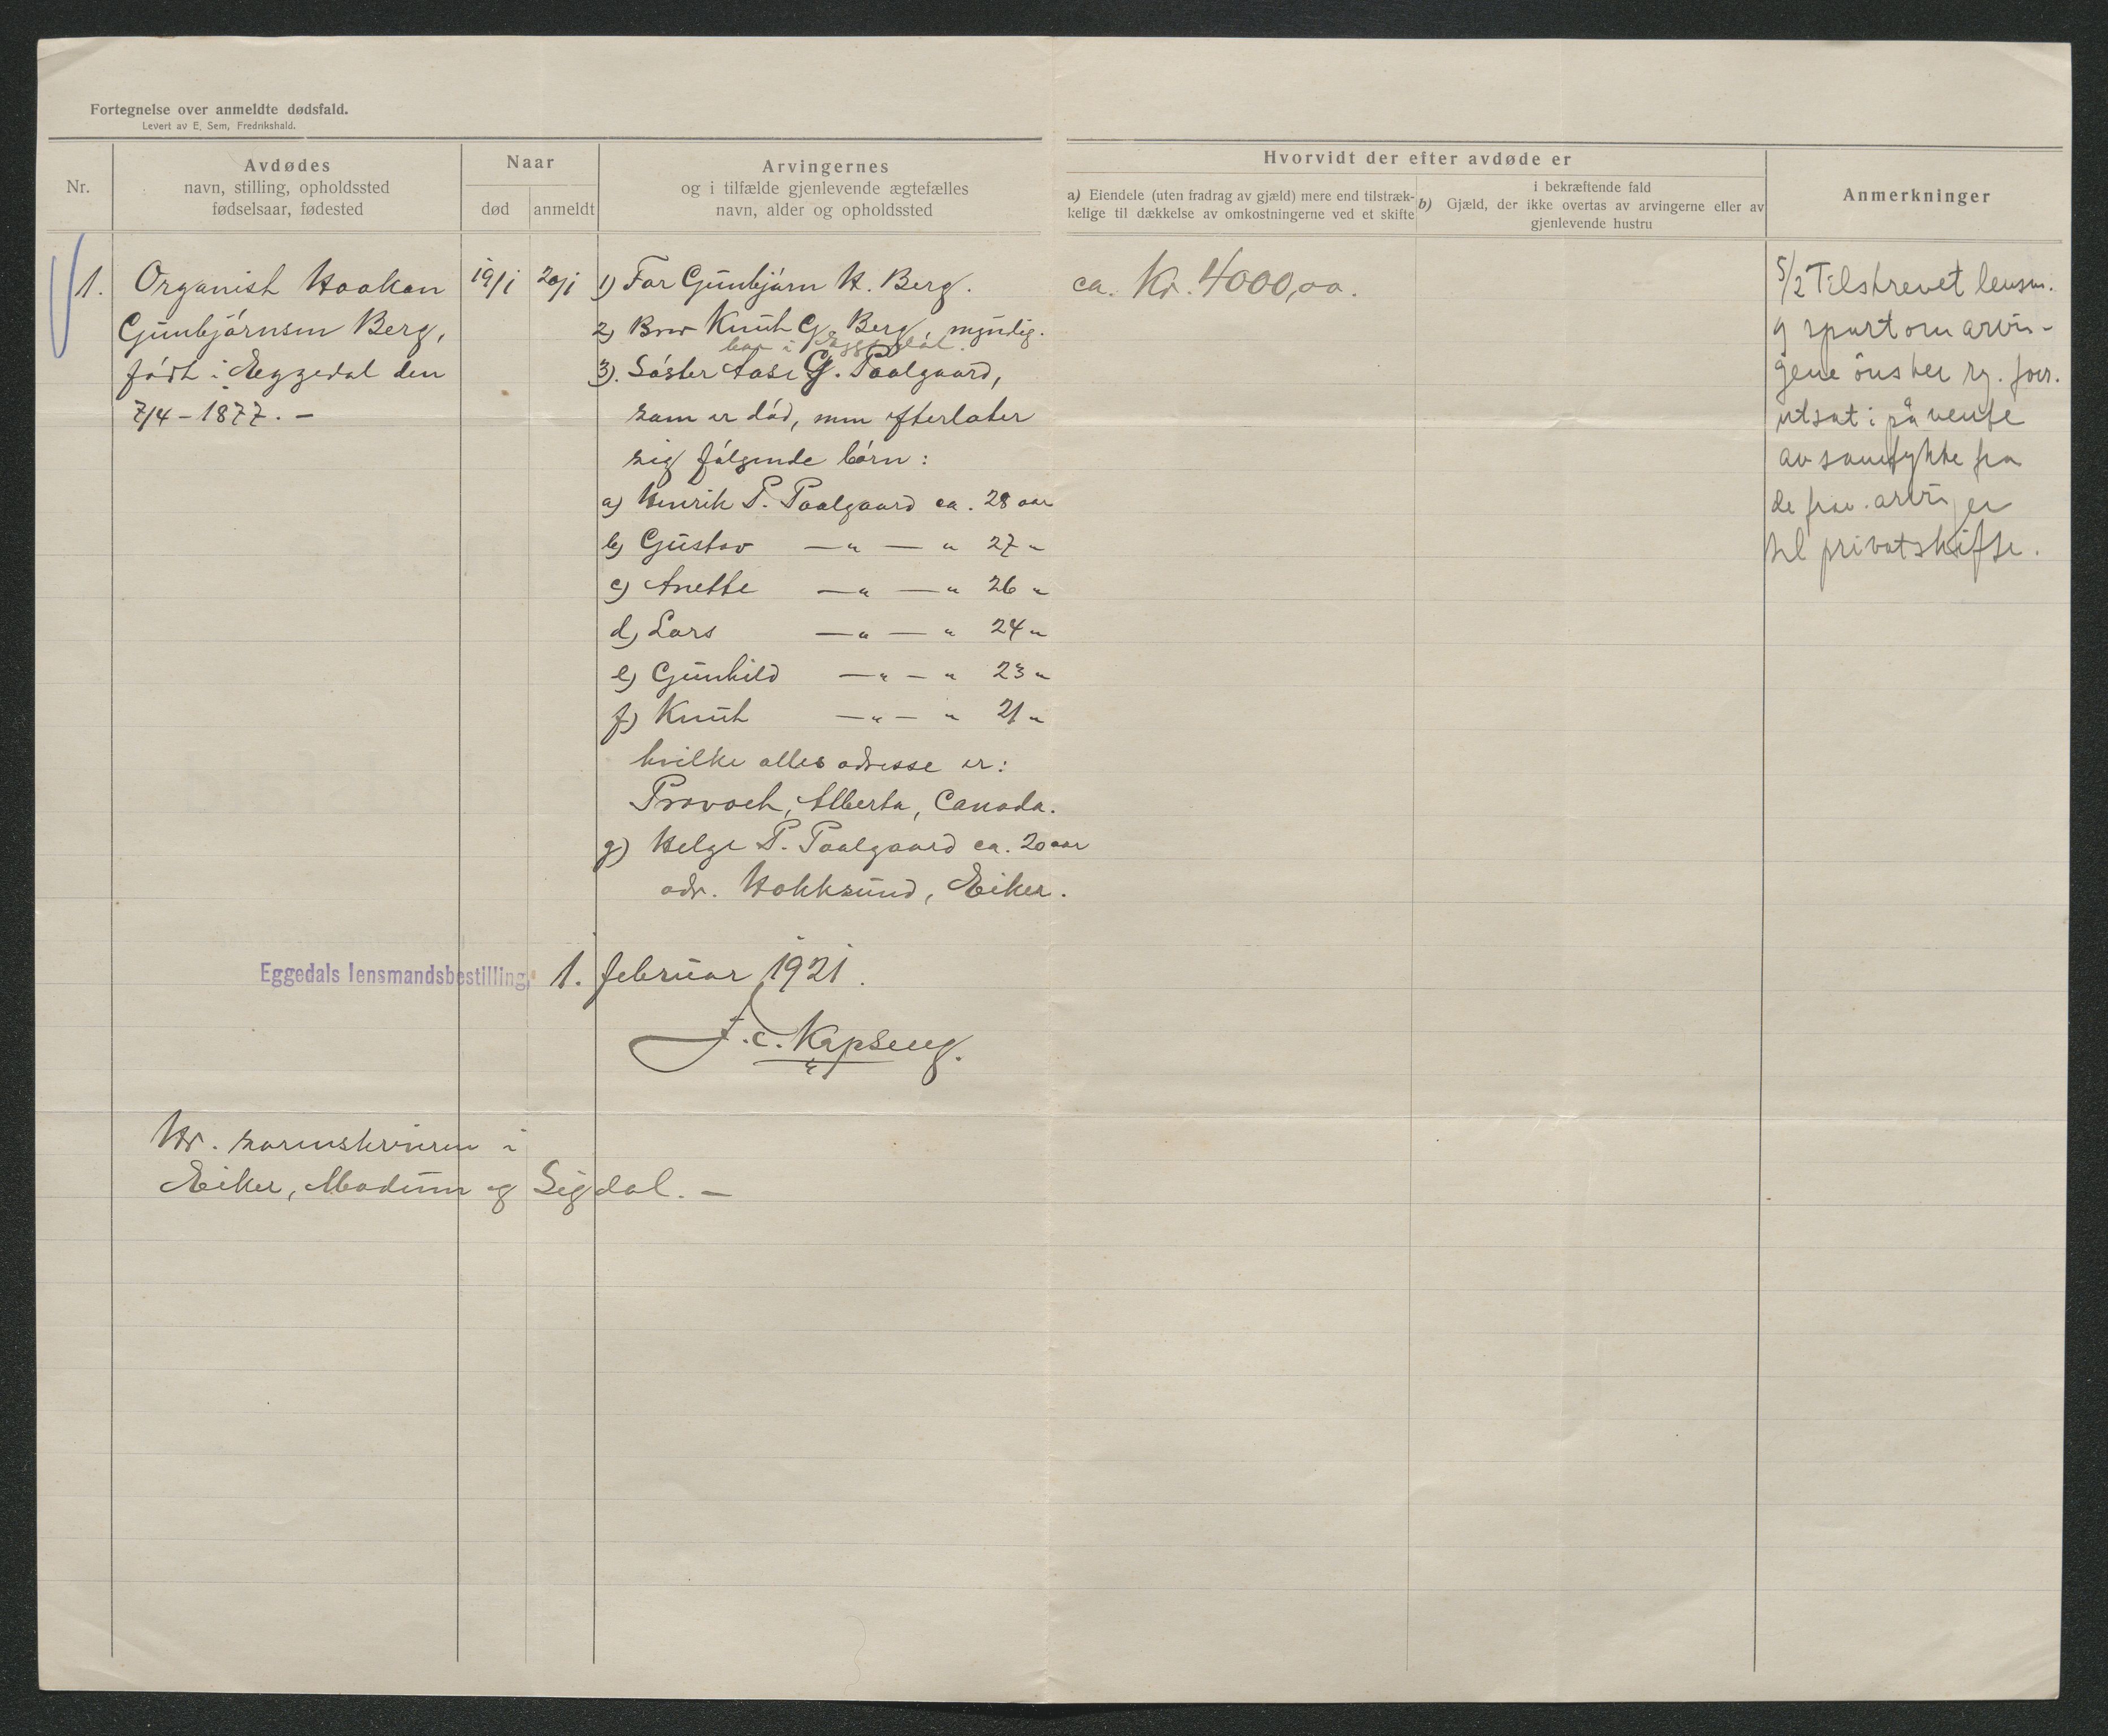 Fortegnelse over anmeldte dødsfald.
Levert av E. Sem, Fredrikshald.
Nr.
Avdødes
navn, stilling, opholdssted
fødselsaar, fødested
Naar
død
anmeldt
Arvingernes
og i tilfælde gjenlevende ægtefælles
navn, alder og opholdssted
Hvorvidt der efter avdøde er
a) Eiendele (uten fradrag av gjæld) mere end tilstræk-
kelige til dækkelse av omkostningerne ved et skifte
i bekræftende fald
b) Gjæld, der ikke overtas av arvingerne eller av
gjenlevende hustru
Anmerkninger
1.
Organist Haakon
Gunbjørnsen Berg,
født i Eggedal den
7/4 - 1877. -
19/1
20/1
1) Far Gunbjørn H. Berg.
2) Bror Knut G. Berg, myndig.
bor i Eggedal.
3). Søster Aase G. Paalgaard,
som er død, men efterlater
sig følgende børn:
a) Henrik P. Paalgaard ca. 28 aar
b) Gustav — " — " 27 "
c) Anette — " — " 26 "
d) Lars — " — " 24 "
e) Gunhild — " — " 23 "
f) Knut — " — " 21 "
hvilke alles adresse er:
Provost, Alberta, Canada.
g) Helge P. Paalgaard ca. 20 aar
adr. Hokksund, Eiker.
ca. Kr. 4000,00.
5/2 Tilskrevet lensm.
og spurt om arvin-
gene ønsker rg. forr.
utsat i påvente
av samtykke fra
de frav. arvinger
til privat skifte.
Eggedals lensmandsbestilling, 1. februar 1921.
J. C. Kapseng.
Hr. sorenskriveren i
Eiker, Modum og Sigdal. -